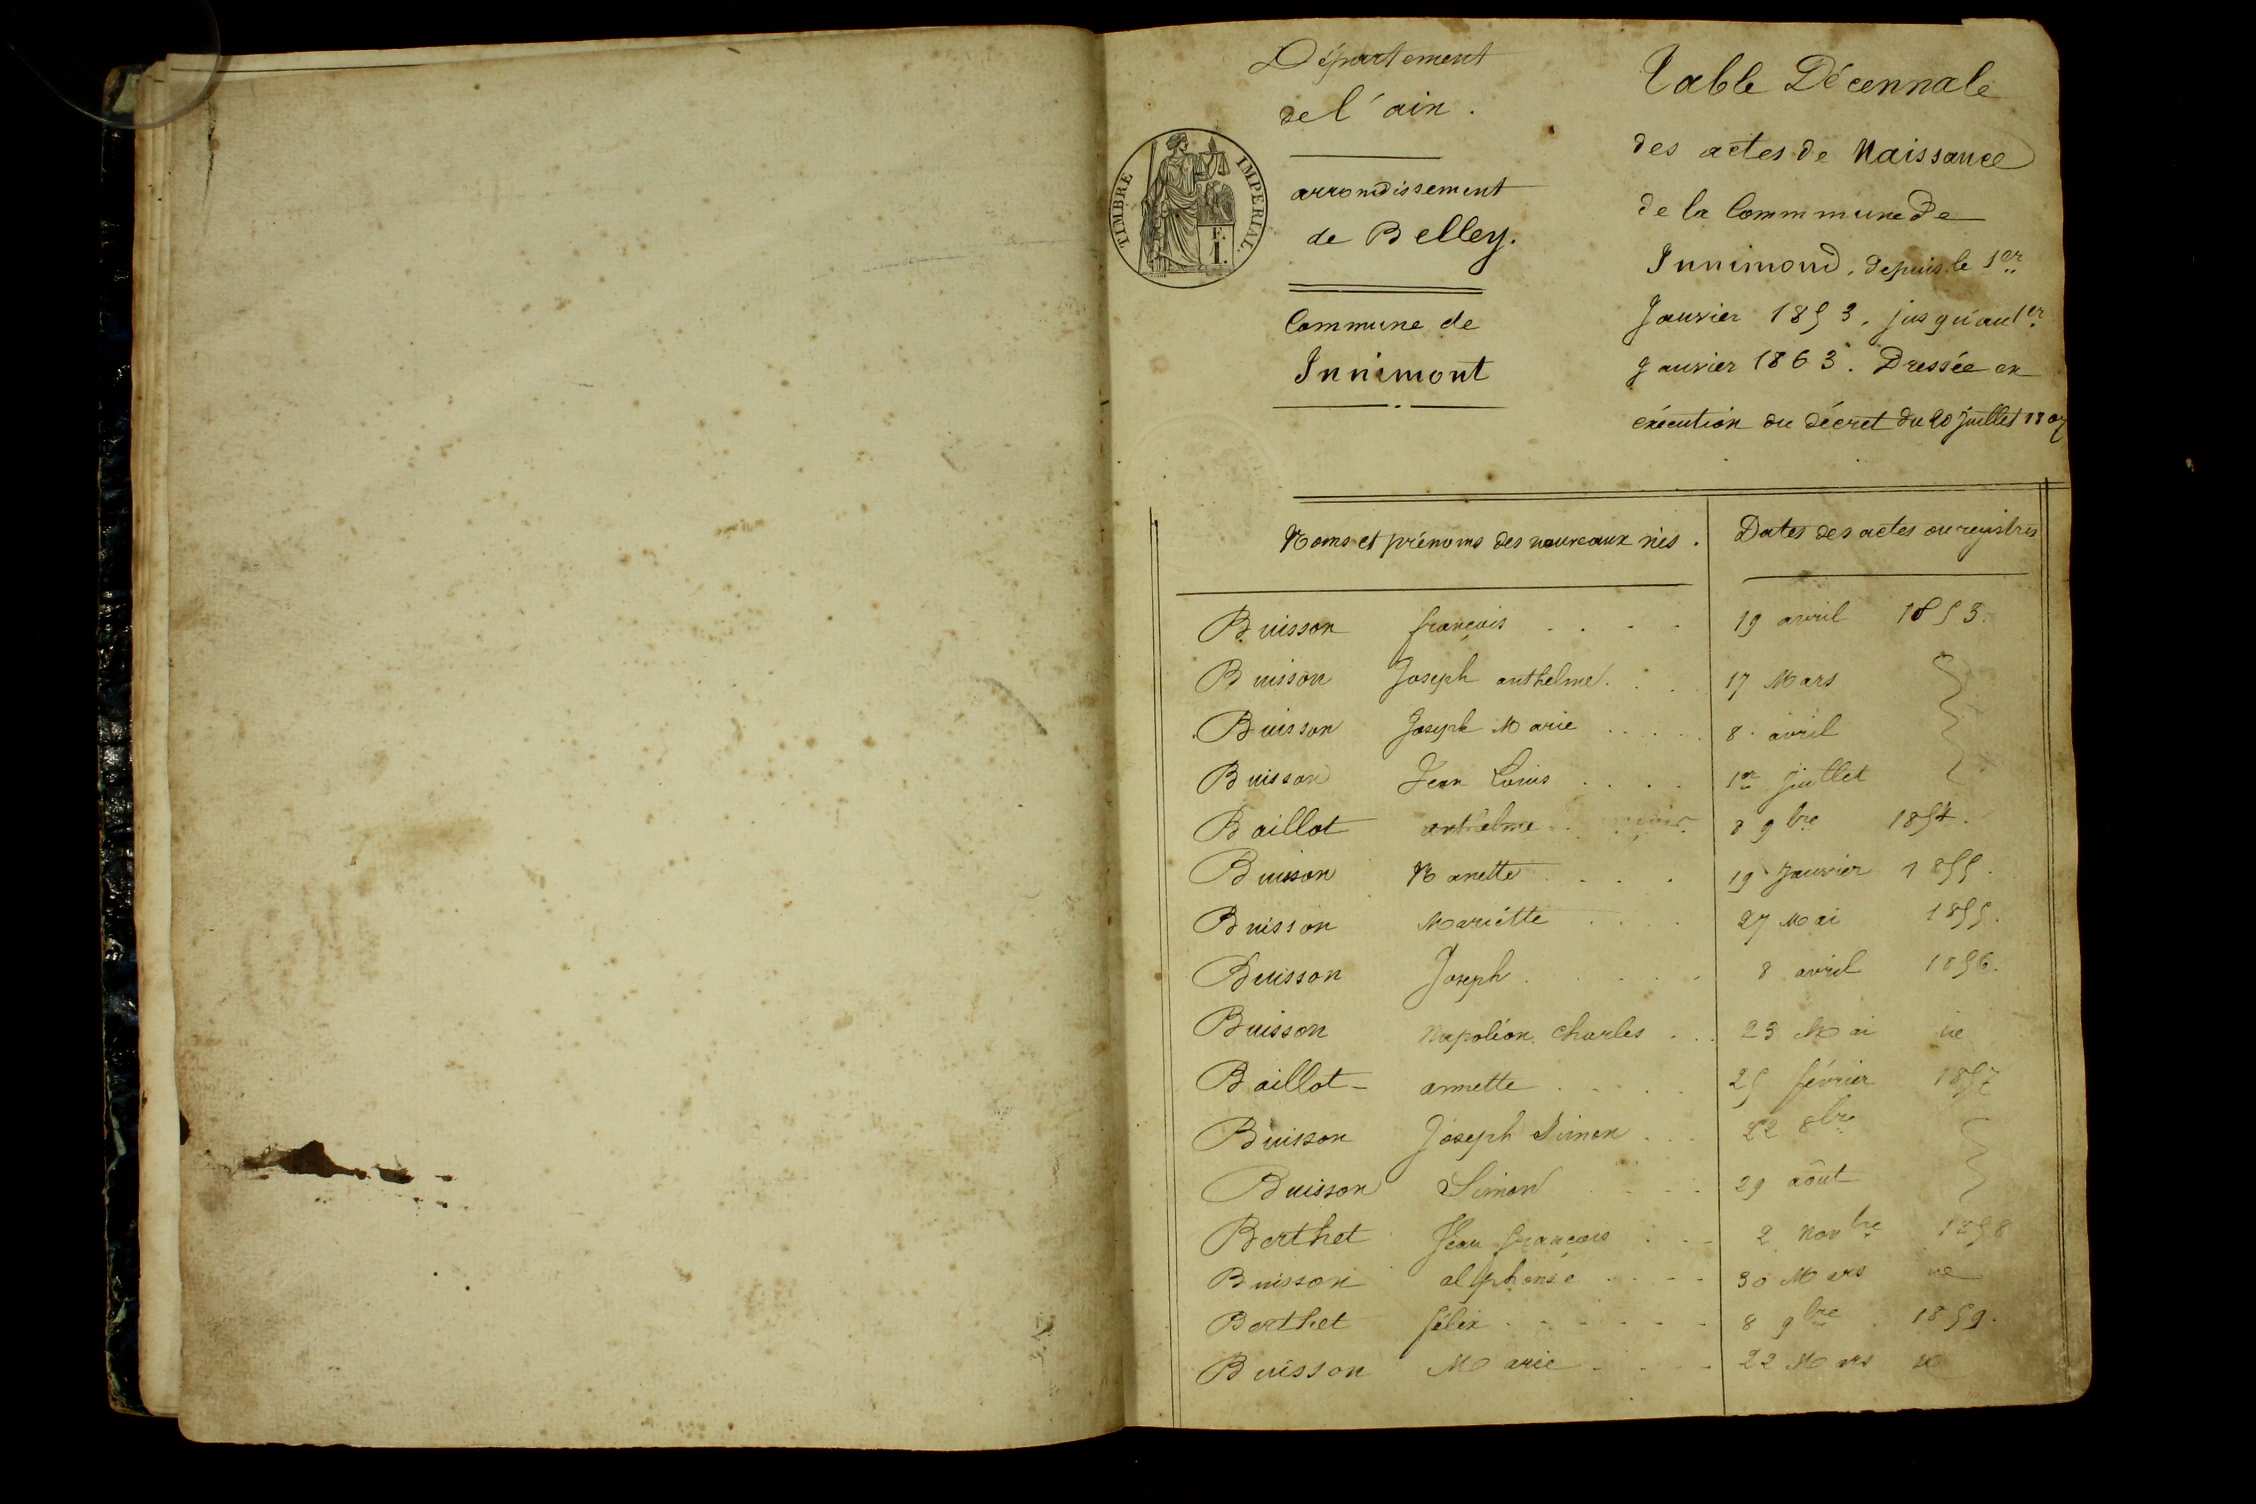 Département
de l'ain.
TIMBRE IMPERIAL.
F.
1.
arrondissement
de Belley.
Commune de
Innimont
Table Décennale
des actes de Naissance
de la Commmune De
Innimond, depuis le 1er
Janvier 1853, jusqu'au 1er
Janvier 1863. Dressée en
exécution du décret du 20 juillet 1807
Noms et prénoms des nouveaux nés. Dates des actes ou registres
Buisson françois .... 19 avril 1853.
Buisson Joseph anthelme... 17 Mars
Buisson Joseph Marie ..... 8 avril
Buisson Jean Louis .... 1er Juillet
Baillot anthelme 8 9bre 1854.
Buisson Nanette .... 19 Janvier 1855.
Buisson Mariette .... 27 Mai 1855.
Buisson Joseph ..... 8 avril 1856.
Buisson Napoléon Charles ... 23 Mai
Baillot - annette .... 25 février 1857
Buisson Joseph Simon ... 22 8bre
Buisson Simon .... 29 août
Berthet Jean françois ... 2 Novbre 1858
Buisson alphonse .... 30 Mars
Berthet félix ...... 8 9bre 1859.
Buisson Marie .... 22 Mars